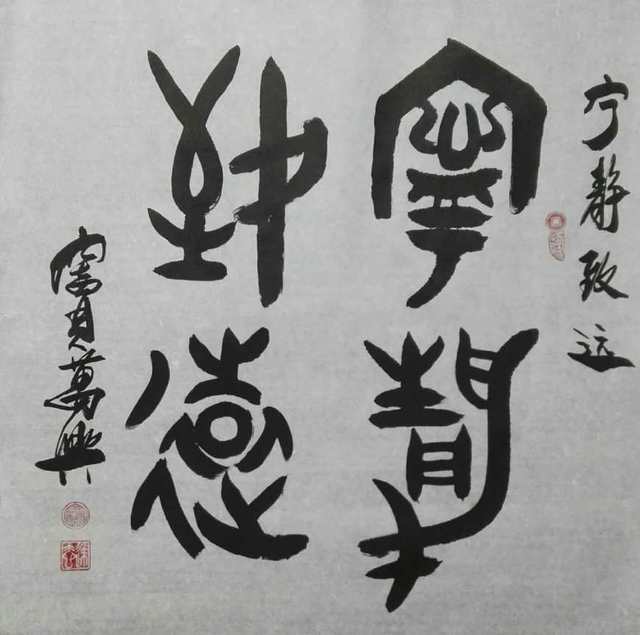 宁静致远
寧靜
致遠
萬興